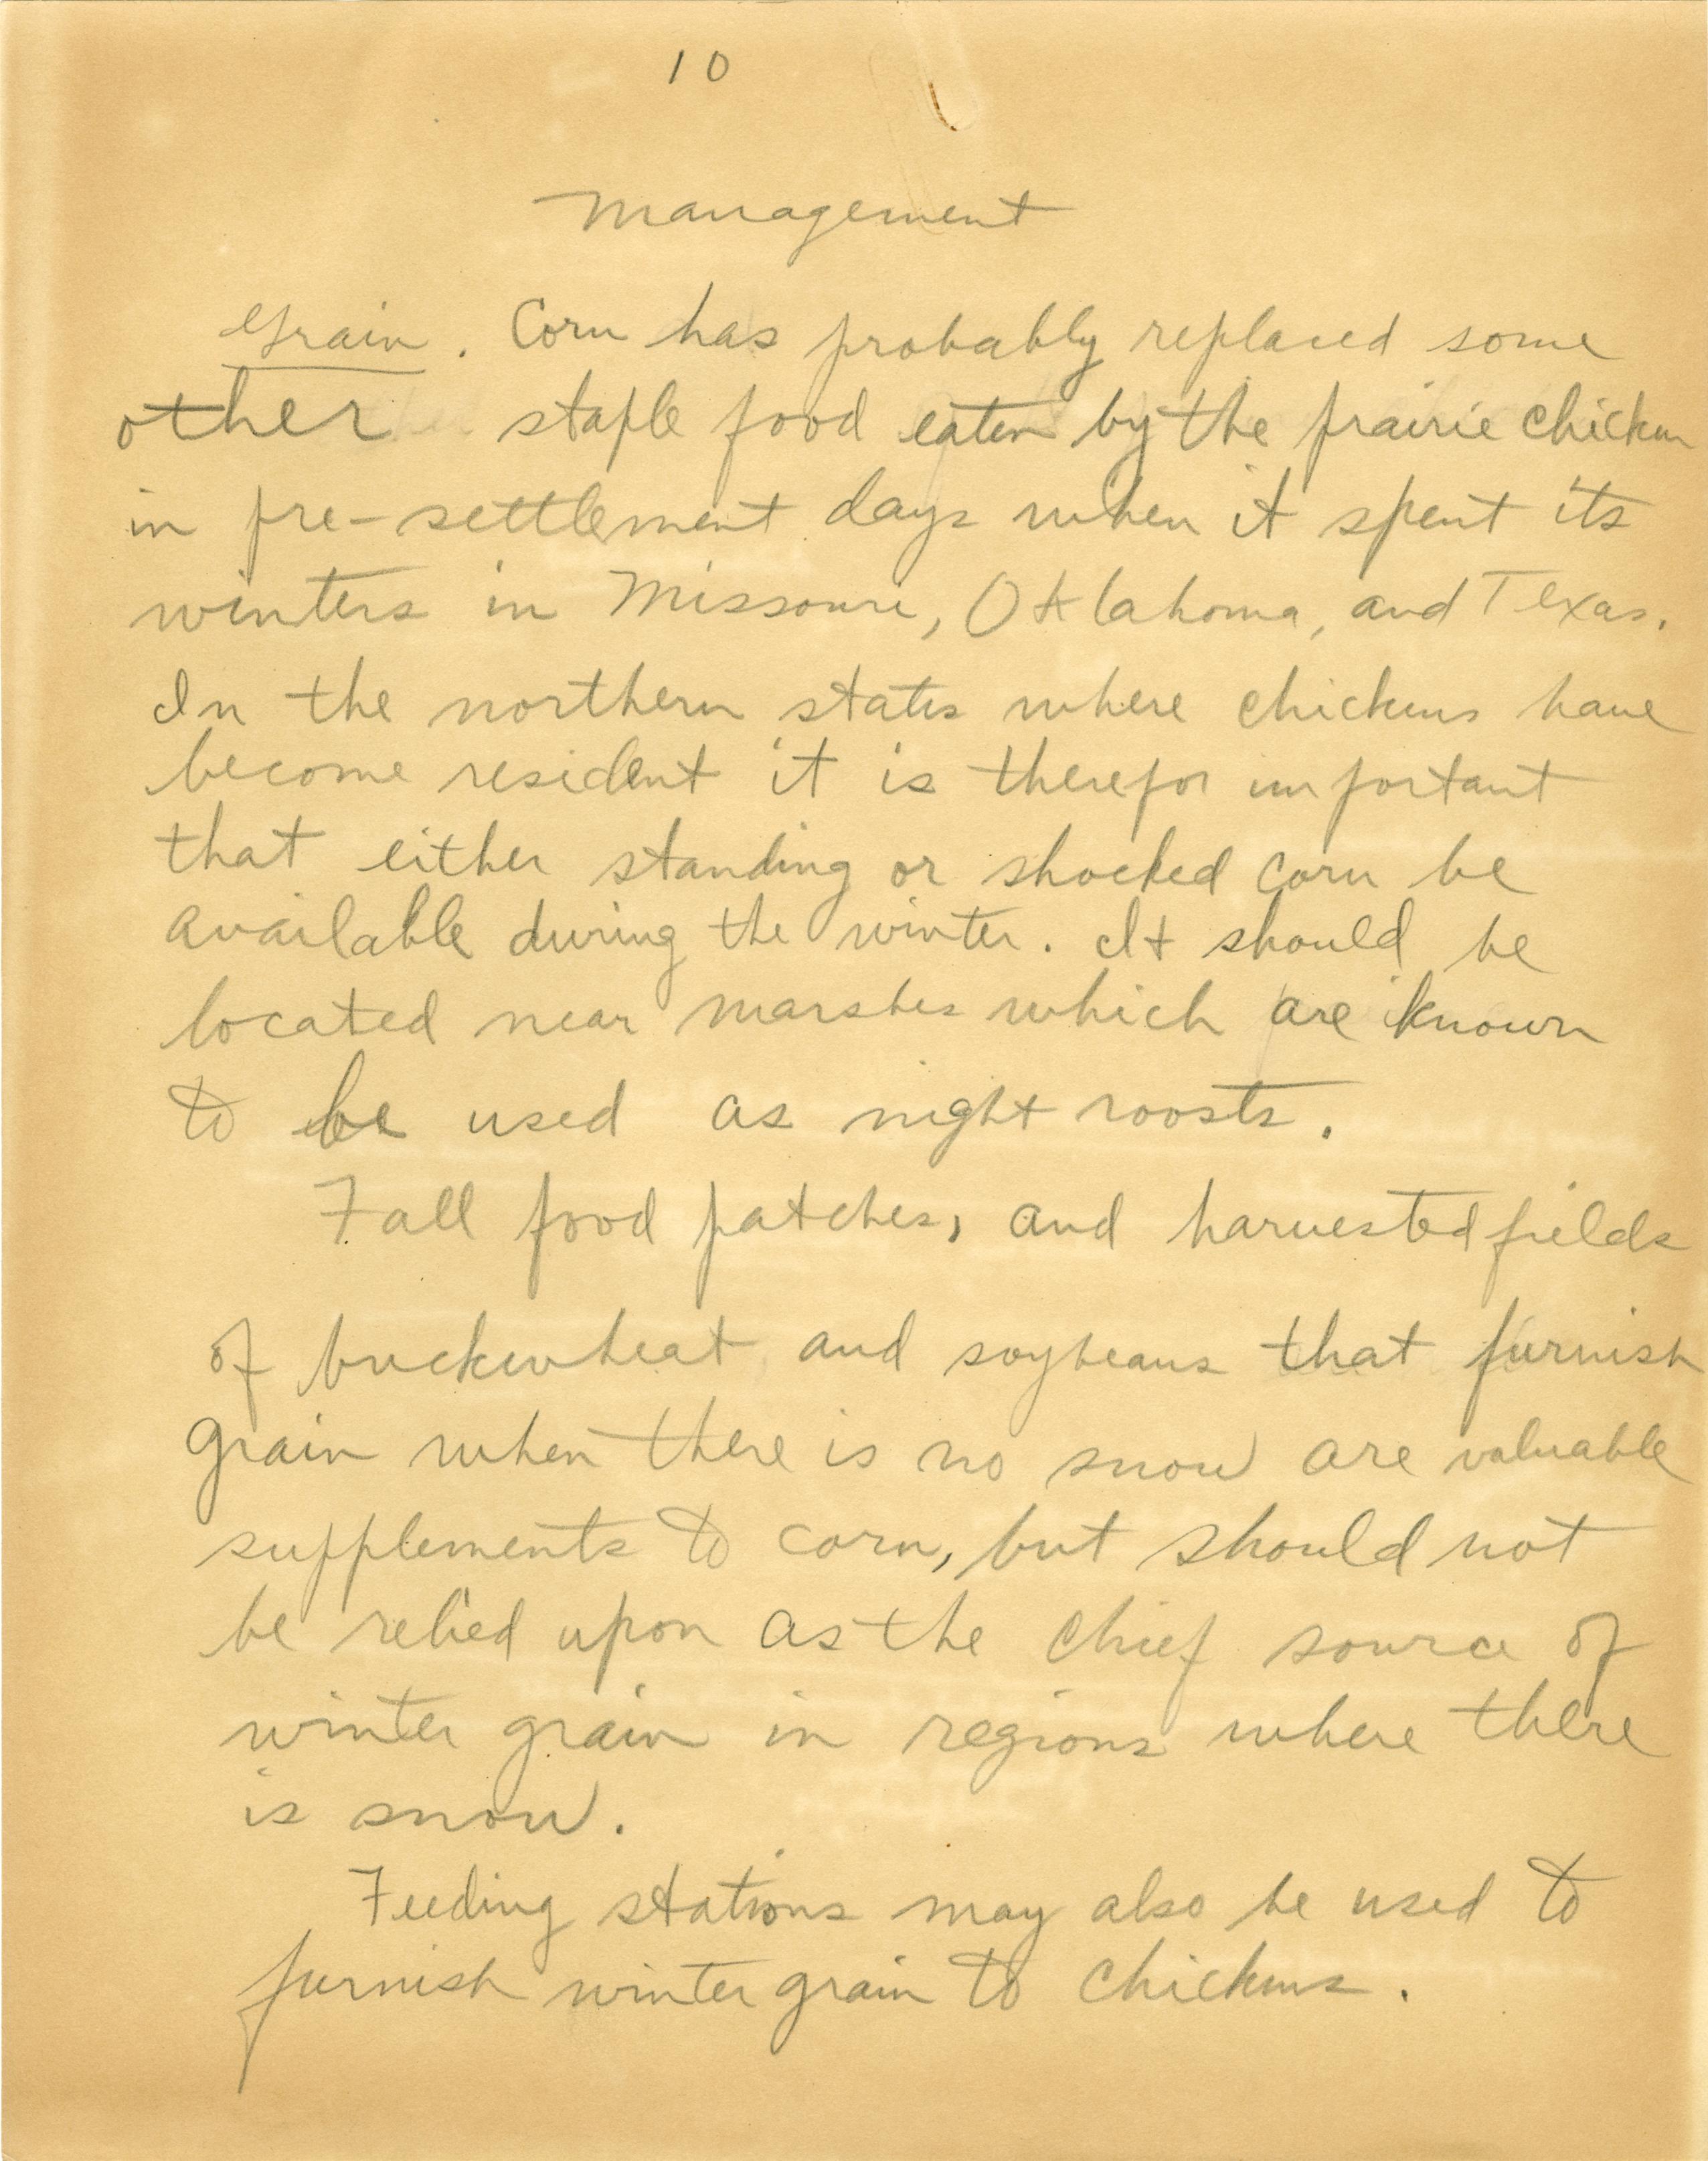 10
Management
Grain. Corn has probably replaced some
other staple food eaten by the prairie chicken
in pre-settlement days when it spent its
winters in Missouri, Oklahoma, and Texas.
In the northern states where chickens have
become resident it is therefor important
that either standing or shocked corn be
available during the winter. It should be
located near marshes which are known
to be used as night roosts.
Fall food patches, and harvested fields
of buckwheat and soybeans that furnish
grain when there is no snow are valuable
supplements to corn, but should not
be relied upon as the chief source of
winter grain in regions where there
is snow.
Feeding stations may also be used to
furnish winter grain to chickens.